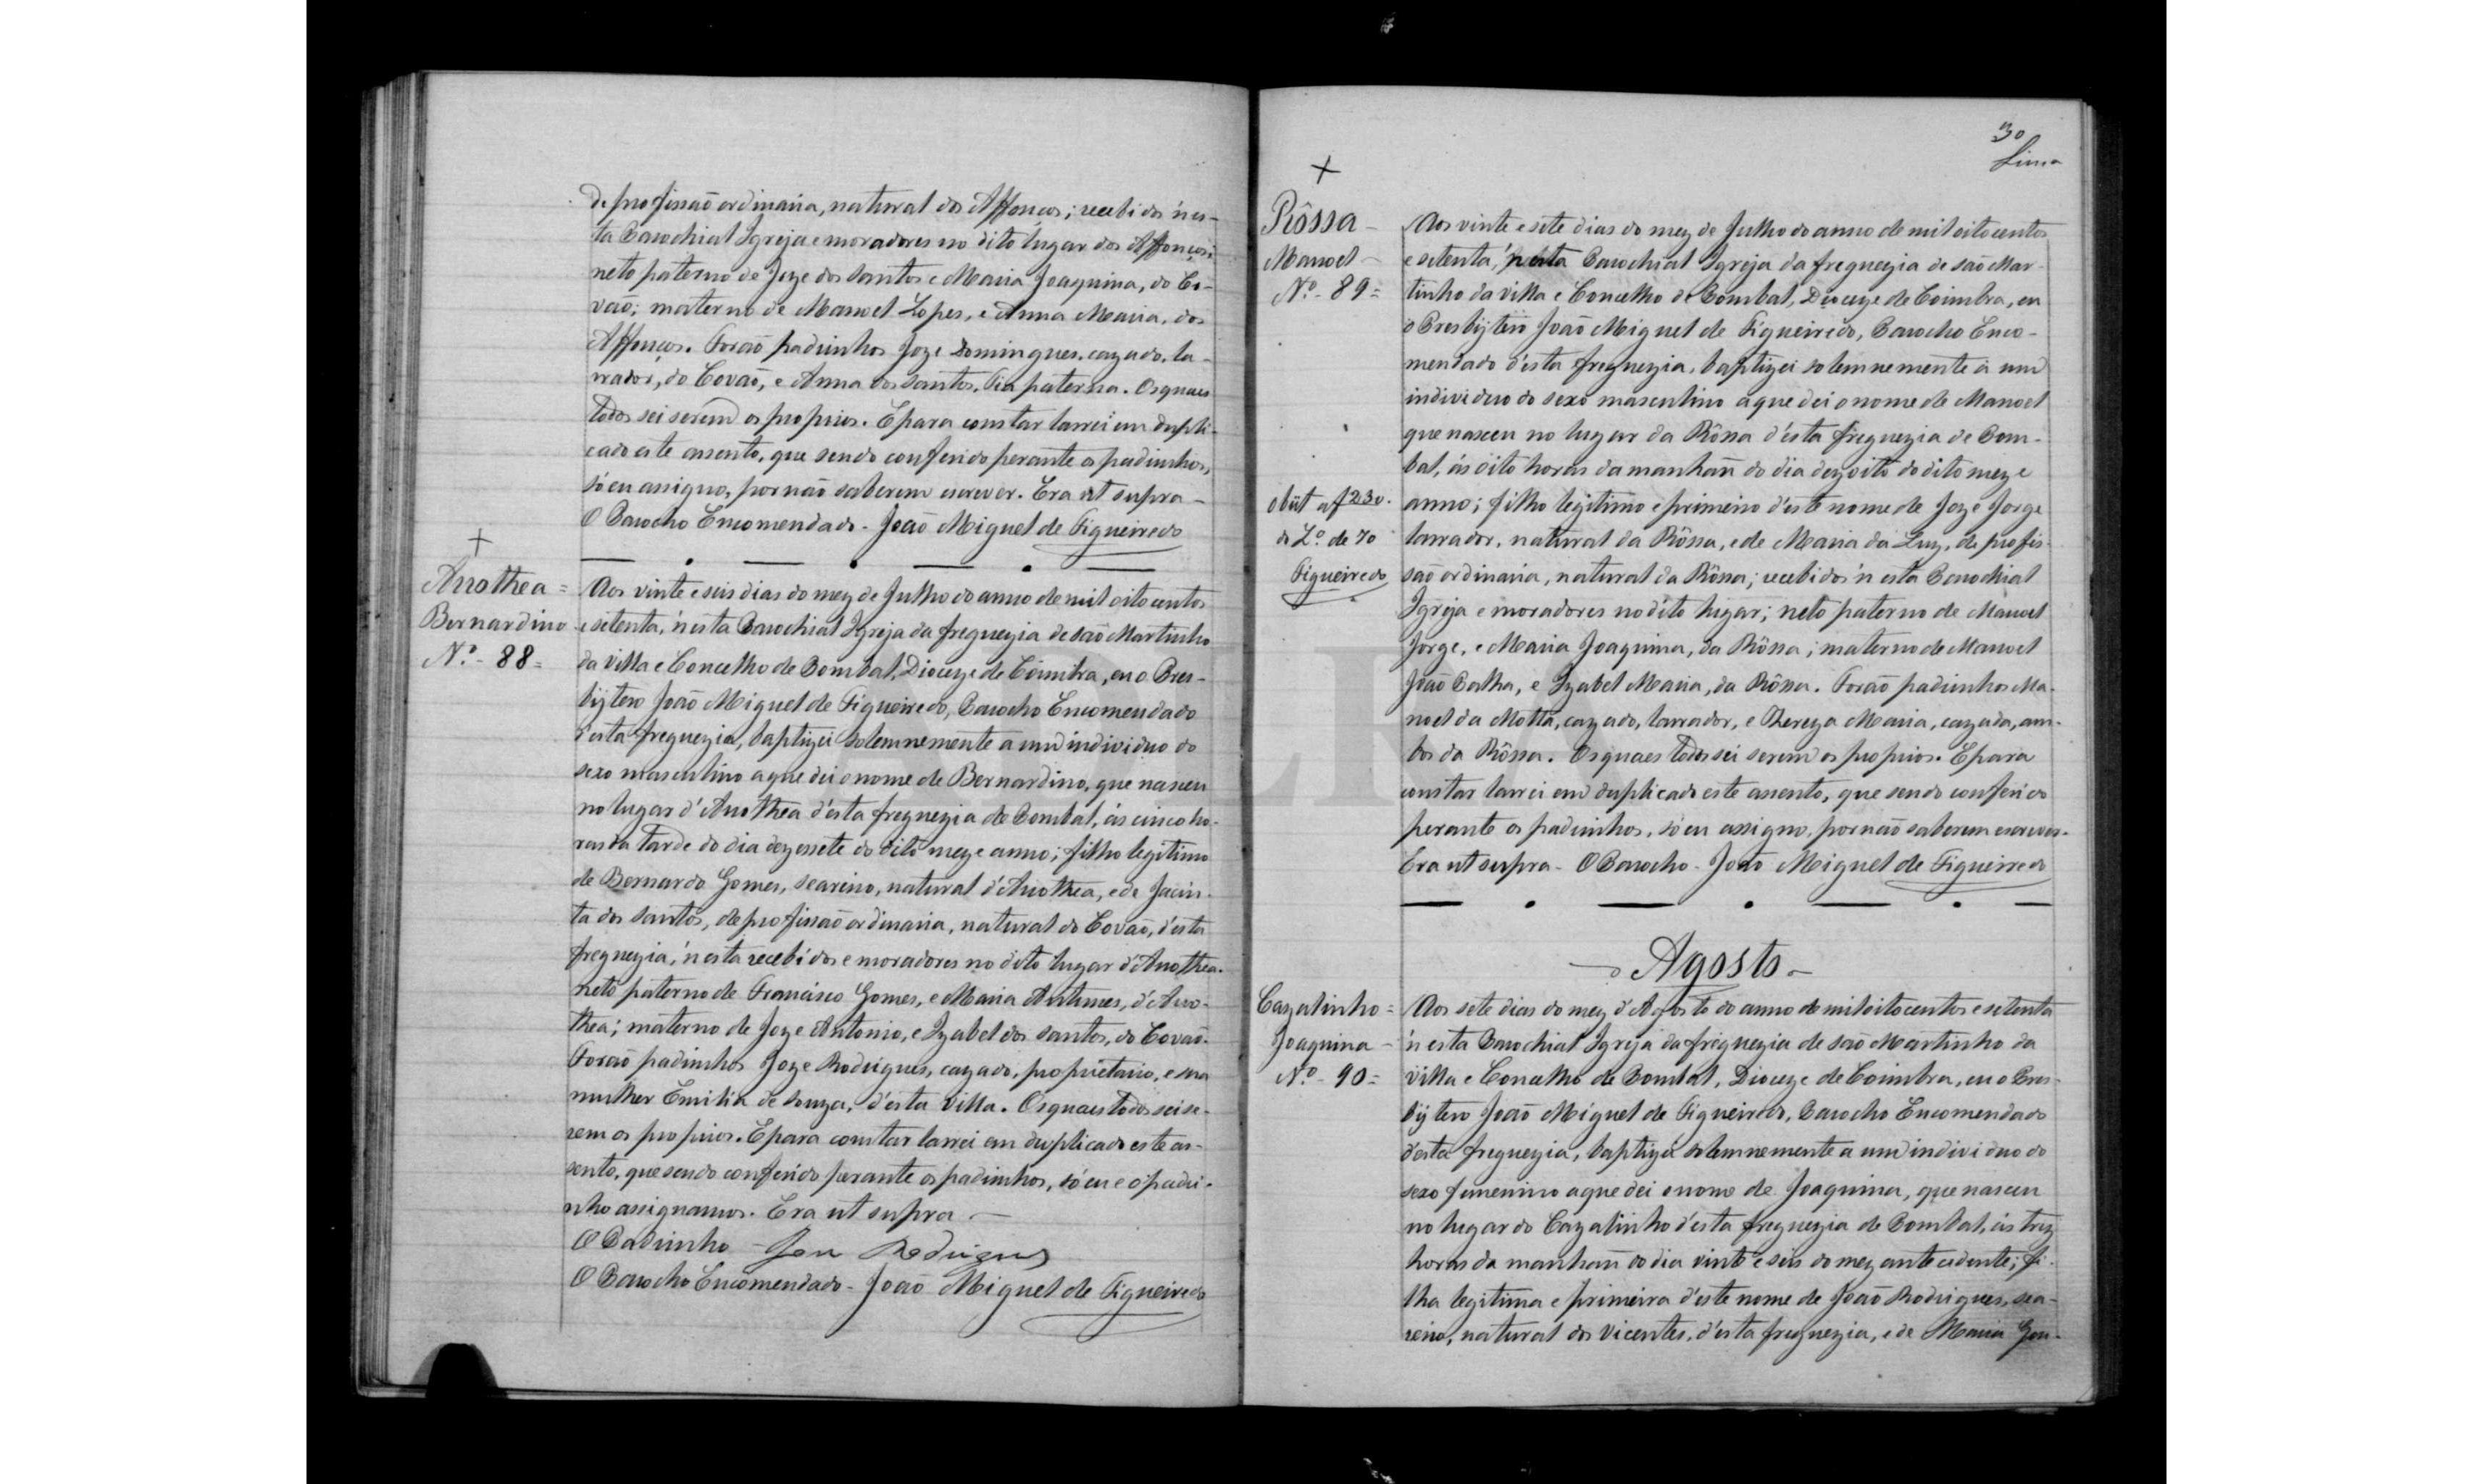 de profissaõ ordinaria, natural dos Affonços; recebidos n'es-
ta Parochial Igreja e moradores no dito lugar dos Affonços;
neto paterno de Joze dos Santos e Maria Joaquina, do Co-
vaõ; materno de Manoel Lopes, e Anna Maria, dos
Affonços. Foraõ padrinhos Joze Domingues, cazado, la-
vrador, do Covaõ, e Anna dos Santos, tia paterna. Os quaes
todos sei serem os proprios. E para constar lavrei em dupli-
cado este assento, que sendo conferido perante os padrinhos,
só eu assigno, por naõ saberem escrever. Era ut supra -
O Parocho Encomendado - Joaõ Miguel de Figueiredo
Arrothea =
Bernardino
N.º - 88 =
Aos vinte e seis dias do mez de Julho do anno de mil oito centos
e setenta, n'esta Parochial Igreja da freguezia de Saõ Martinho
da villa e Concelho de Pombal, Dioceze de Coimbra, eu o Pres-
bytero Joaõ Miguel de Figueiredo, Parocho Encomendado
d'esta freguezia, baptizei solemnemente a um individuo do
sexo masculino a que dei o nome de Bernardino, que nasceu
no lugar d'Arrothea d'esta freguezia de Pombal, ás cinco ho-
ras da tarde do dia dezessete do dito mez e anno; filho legitimo
de Bernardo Gomes, seareiro, natural d'Arrothea, e de Jacin-
ta dos Santos, de profissaõ ordinaria, natural do Covaõ, d'esta
freguezia, n'esta recebidos e moradores no dito lugar d'Arrothea.
neto paterno de Francisco Gomes, e Maria Antunes, d'Arro-
thea; materno de Joze Antonio, e Izabel dos Santos, do Covaõ.
Foraõ padrinhos Joze Rodrigues, cazado, proprietario, e sua
mulher Emilia de Souza, d'esta villa. Os quaes todos sei se-
rem os proprios. E para constar lavrei em duplicado este as-
sento, que sendo conferido perante os padrinhos, só eu e o padri-
nho assignamos. Era ut supra -
O Padrinho - Joze Rodrigues
O Parocho Encomendado - Joaõ Miguel de Figueiredo
30
Lima
Rôssa -
Manoel -
N.º - 89 =
obiit a f 230.
do L.º de 70
Figueiredo
Aos vinte e sete dias do mez de Julho do anno de mil oitocentos
e setenta, n'esta Parochial Igreja da freguezia de Saõ Mar-
tinho da villa e Concelho de Pombal, Dioceze de Coimbra, eu
o Presbytero Joaõ Miguel de Figueiredo, Parocho Enco-
mendado d'esta freguezia, baptizei solemnemente a um
individuo do sexo masculino a que dei o nome de Manoel
que nasceu no lugar da Rôssa d'esta freguezia de Pom-
bal, ás oito horas da manhañ do dia dezoito do dito mez e
anno; filho legitimo e primeiro d'este nome de Joze Jorge
lavrador, natural da Rôssa, e de Maria da Luz, de profis-
saõ ordinaria, natural da Rôssa; recebidos n'esta Parochial
Igreja e moradores no dito lugar; neto paterno de Manoel
Jorge, e Maria Joaquina, da Rôssa; materno de Manoel
Joaõ Calha, e Izabel Maria, da Rôssa. Foraõ padrinhos Ma-
noel da Motta, cazado, lavrador, e Thereza Maria, cazada, am-
bos da Rôssa. Os quaes todos sei serem os proprios. E para
constar lavrei em duplicado este assento, que sendo conferido
perante os padrinhos, só eu assigno, por naõ saberem escrever.
Era ut supra - O Parocho - Joaõ Miguel de Figueiredo
Agosto -
Cazalinho =
Joaquina -
N.º - 90 =
Aos sete dias do mez d'Agosto do anno de mil oitocentos e setenta
n'esta Parochial Igreja da freguezia de Saõ Martinho da
villa e Concelho de Pombal, Dioceze de Coimbra, eu o Pres-
bytero Joaõ Miguel de Figueiredo, Parocho Encomendado
d'esta freguezia, baptizei solemnemente a um individuo do
sexo femenino a que dei o nome de Joaquina, que nasceu
no lugar do Cazalinho d'esta freguezia de Pombal, ás trez
horas da manhañ do dia vinte e seis do mez antecedente; fi-
lha legitima e primeira d'este nome de Joaõ Rodrigues, sea-
reiro, natural dos Vicentes, d'esta freguezia, e de Maria Gon-